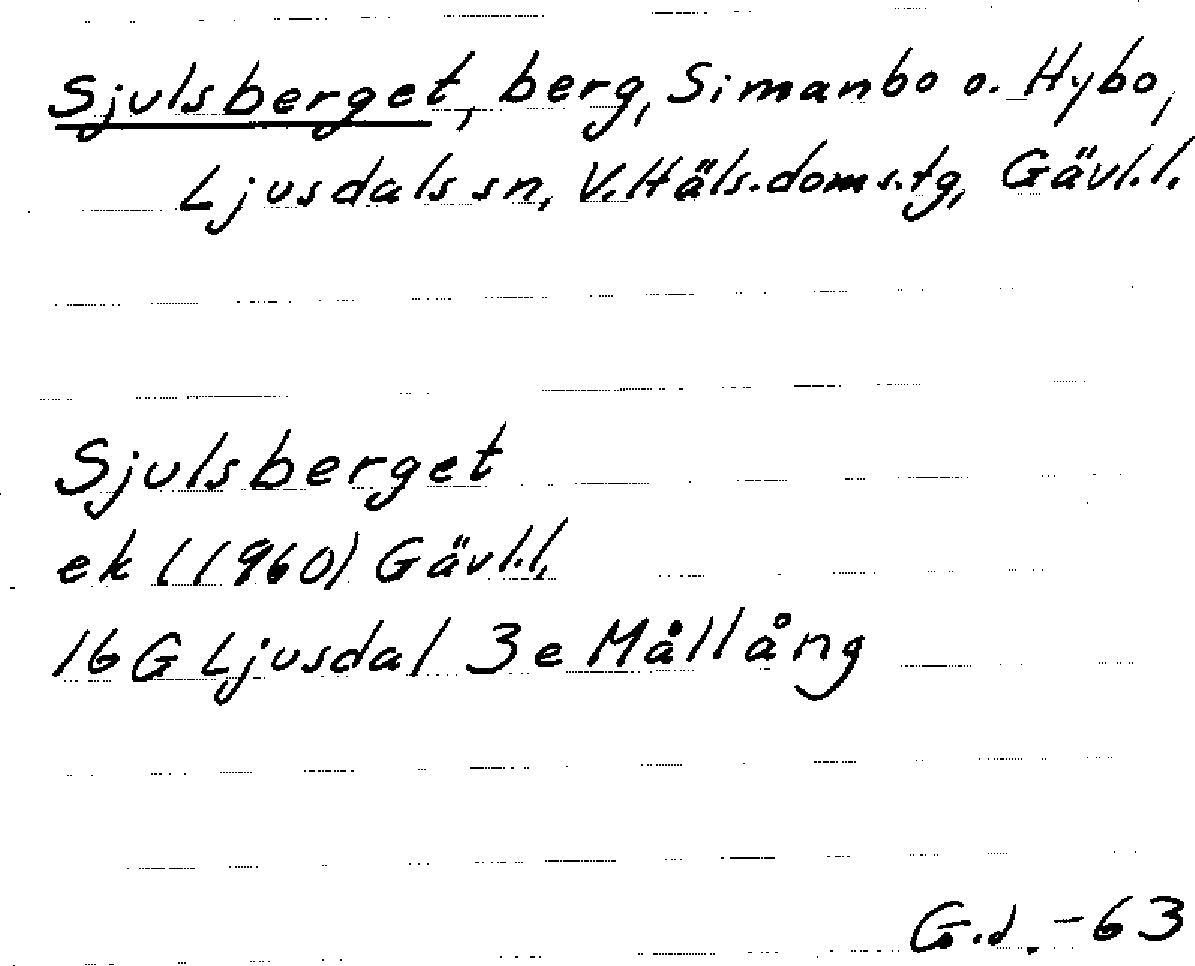 Sjulsberget, berg, Simanbo o. Hybo,
Ljusdals sn, V. Häls. doms.tg, Gävl.l.
Sjulsberget
ek (1960) Gävl.l.
16G Ljusdal 3e Mållång
G.J. -63